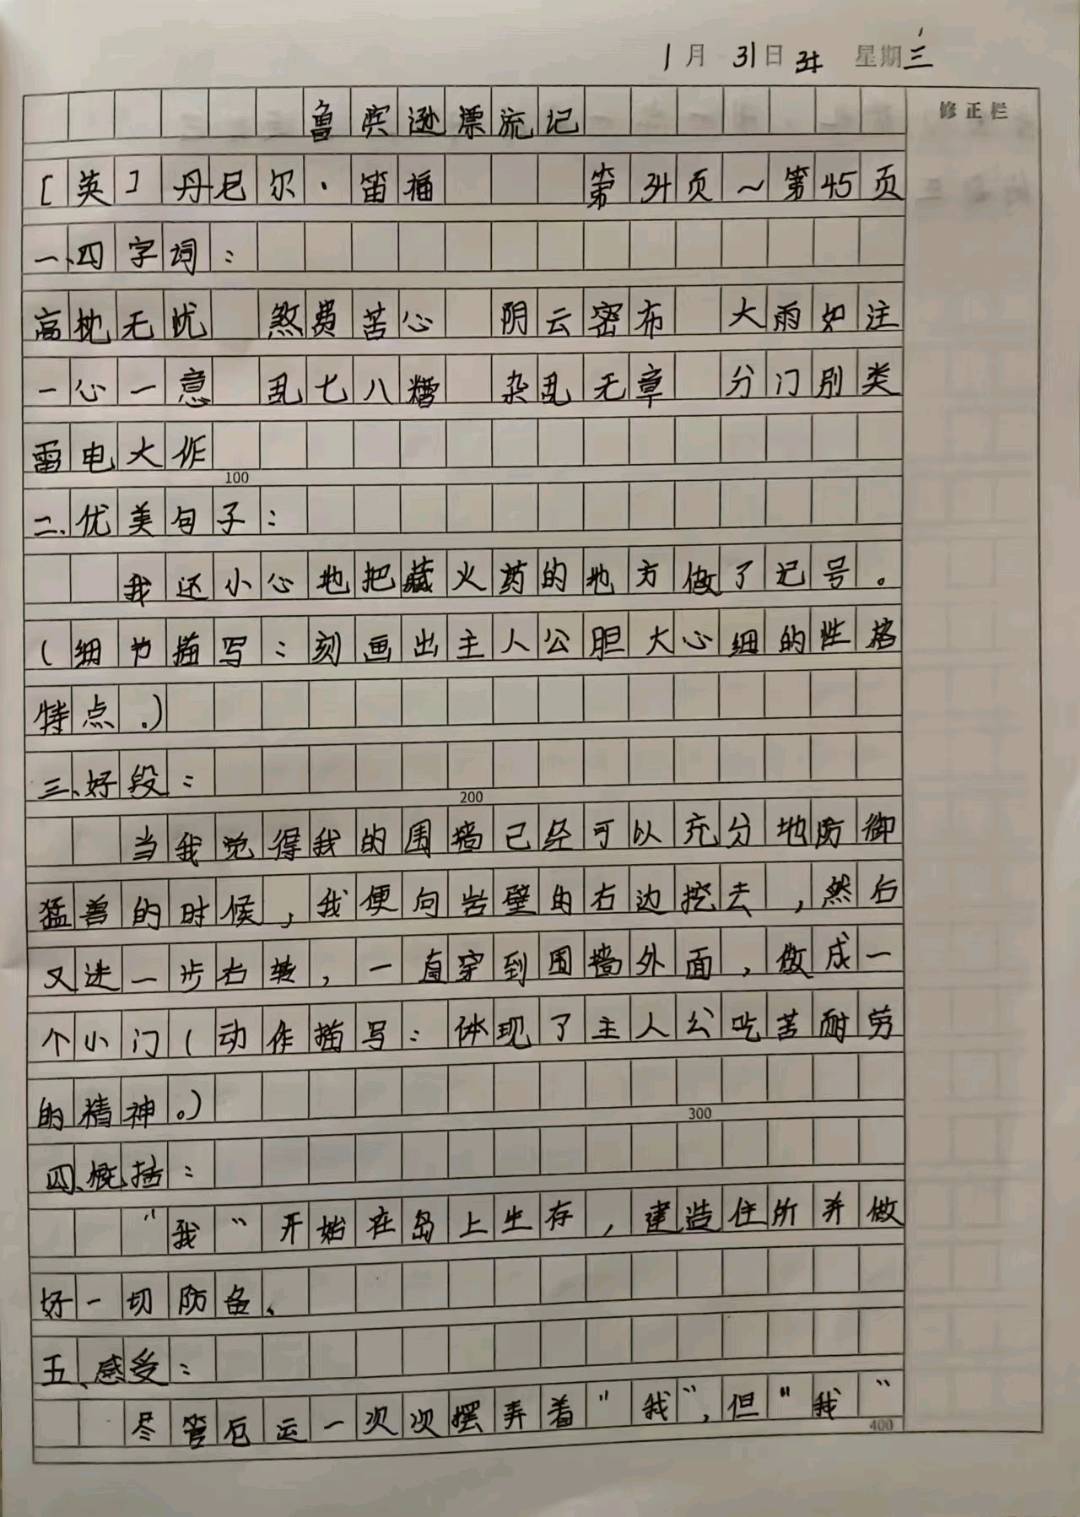 1月 31日 星期三
修正栏
鲁宾逊漂流记
[英]丹尼尔·笛福 第34页~第45页
一、四字词：
高枕无忧 煞费苦心 阴云密布 大雨如注
一心一意 乱七八糟 杂乱无章 分门别类
雷电大作
100
二、优美句子：
我还小心地把藏火药的地方做了记号。
(细节描写：刻画出主人公胆大心细的性格
特点.)
三、好段：
200
当我觉得我的围墙已经可以充分地防御
猛兽的时候，我便向岩壁的右边挖去，然后
又进一步右转，一直穿到围墙外面，做成一
个小门(动作描写：体现了主人公吃苦耐劳
的精神。)
300
四、概括：
“我“开始在岛上生存，建造住所并做
好一切防备、
五、感受：
尽管厄运一次次摆弄着“我“,但“我“
400